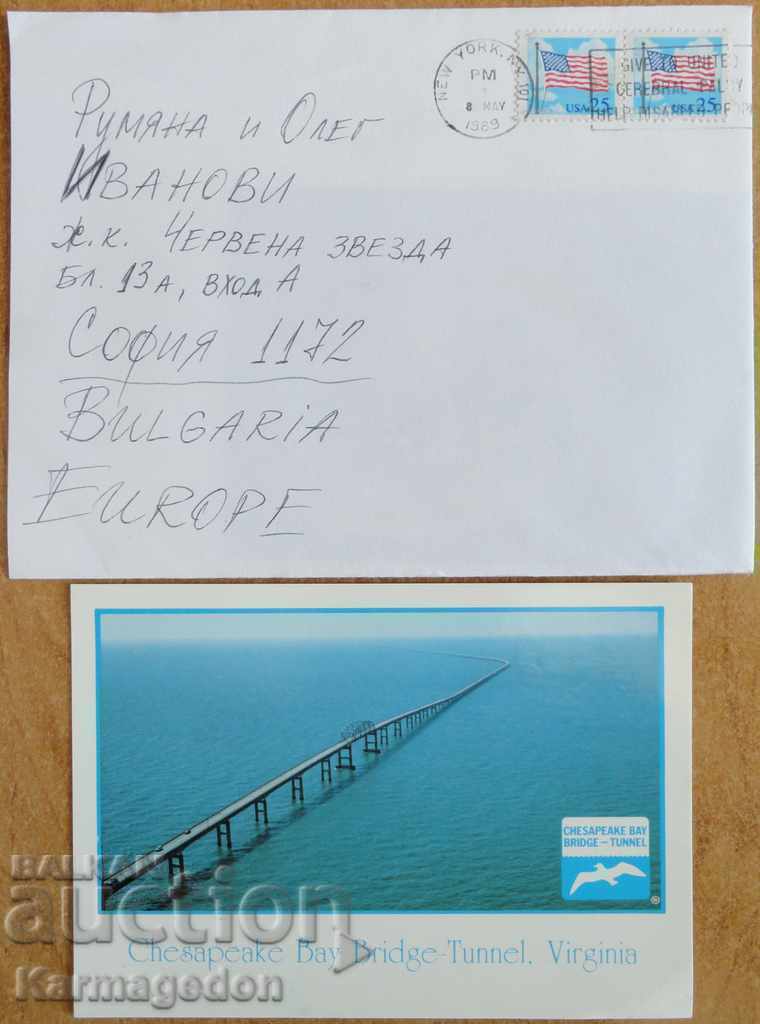 NEW YORK, N.Y.
PM
8 MAY
1989
GIVE TO UNITED
CEREBRAL PALSY
HELP DISABLED PEOPLE
USA 25
USA 25
Румяна и Олег
Иванови
ж.к. Червена звезда
Бл. 13А, вход А
София 1172
Bulgaria
Europe
CHESAPEAKE BAY
BRIDGE-TUNNEL
®
Chesapeake Bay Bridge-Tunnel, Virginia
BALKAN
auction
Karmagedon